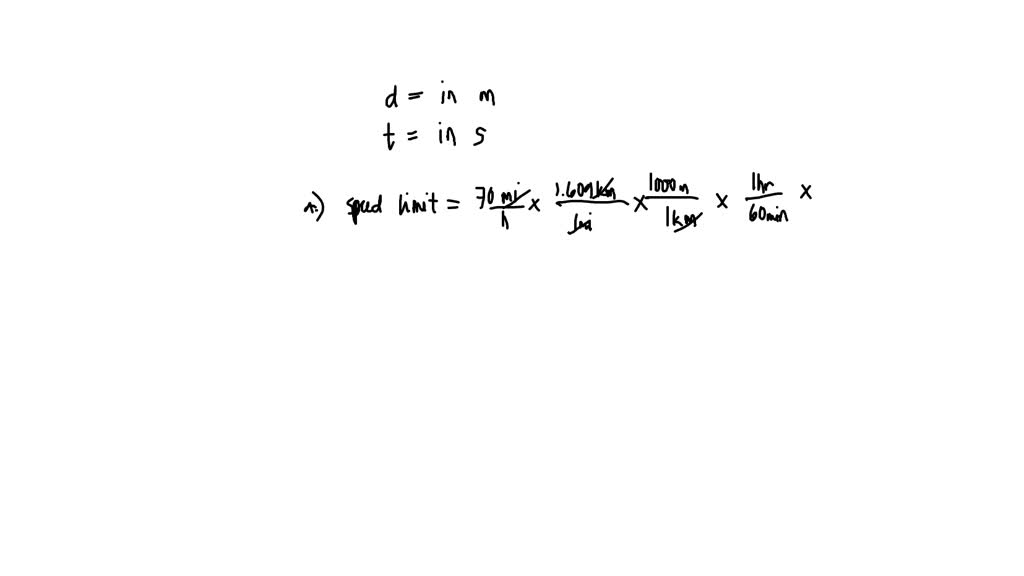 d = in m
t = in s
a.) speed limit = 70 mi/h × 1.609 km/1 mi × 1000 m/1 km × 1 hr/60 min ×